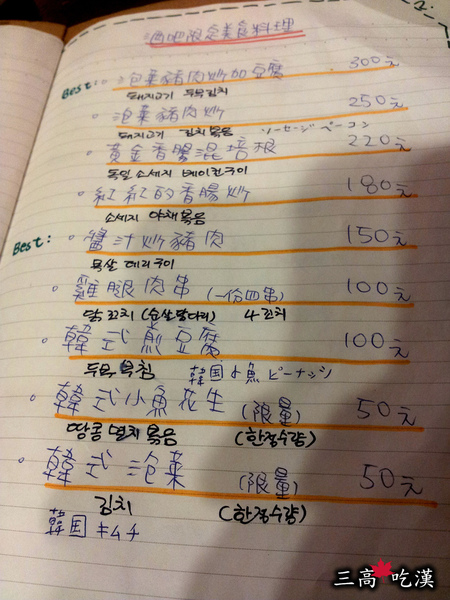 酒吧限定美食料理
Best: 泡菜豬肉炒加豆腐 300元
돼지고기 두부김치
泡菜豬肉炒 250元
돼지고기 김치볶음 ソーセージベーコン
黃金香腸混培根 220元
독일소세지 베이컨구이
紅紅的香腸炒 180元
소세지 야채볶음
Best: 醬汁炒豬肉 150元
목살 데리구이
雞腿肉串 (一份四串) 100元
닭꼬치 (순살닭다리) 4꼬치
韓式煎豆腐 100元
두부부침 韓国小魚ピーナッツ
韓式小魚花生 (限量) 50元
땅콩멸치볶음 (한정수량)
韓式泡菜 (限量) 50元
김치 (한정수량)
韓国キムチ
三高吃漢